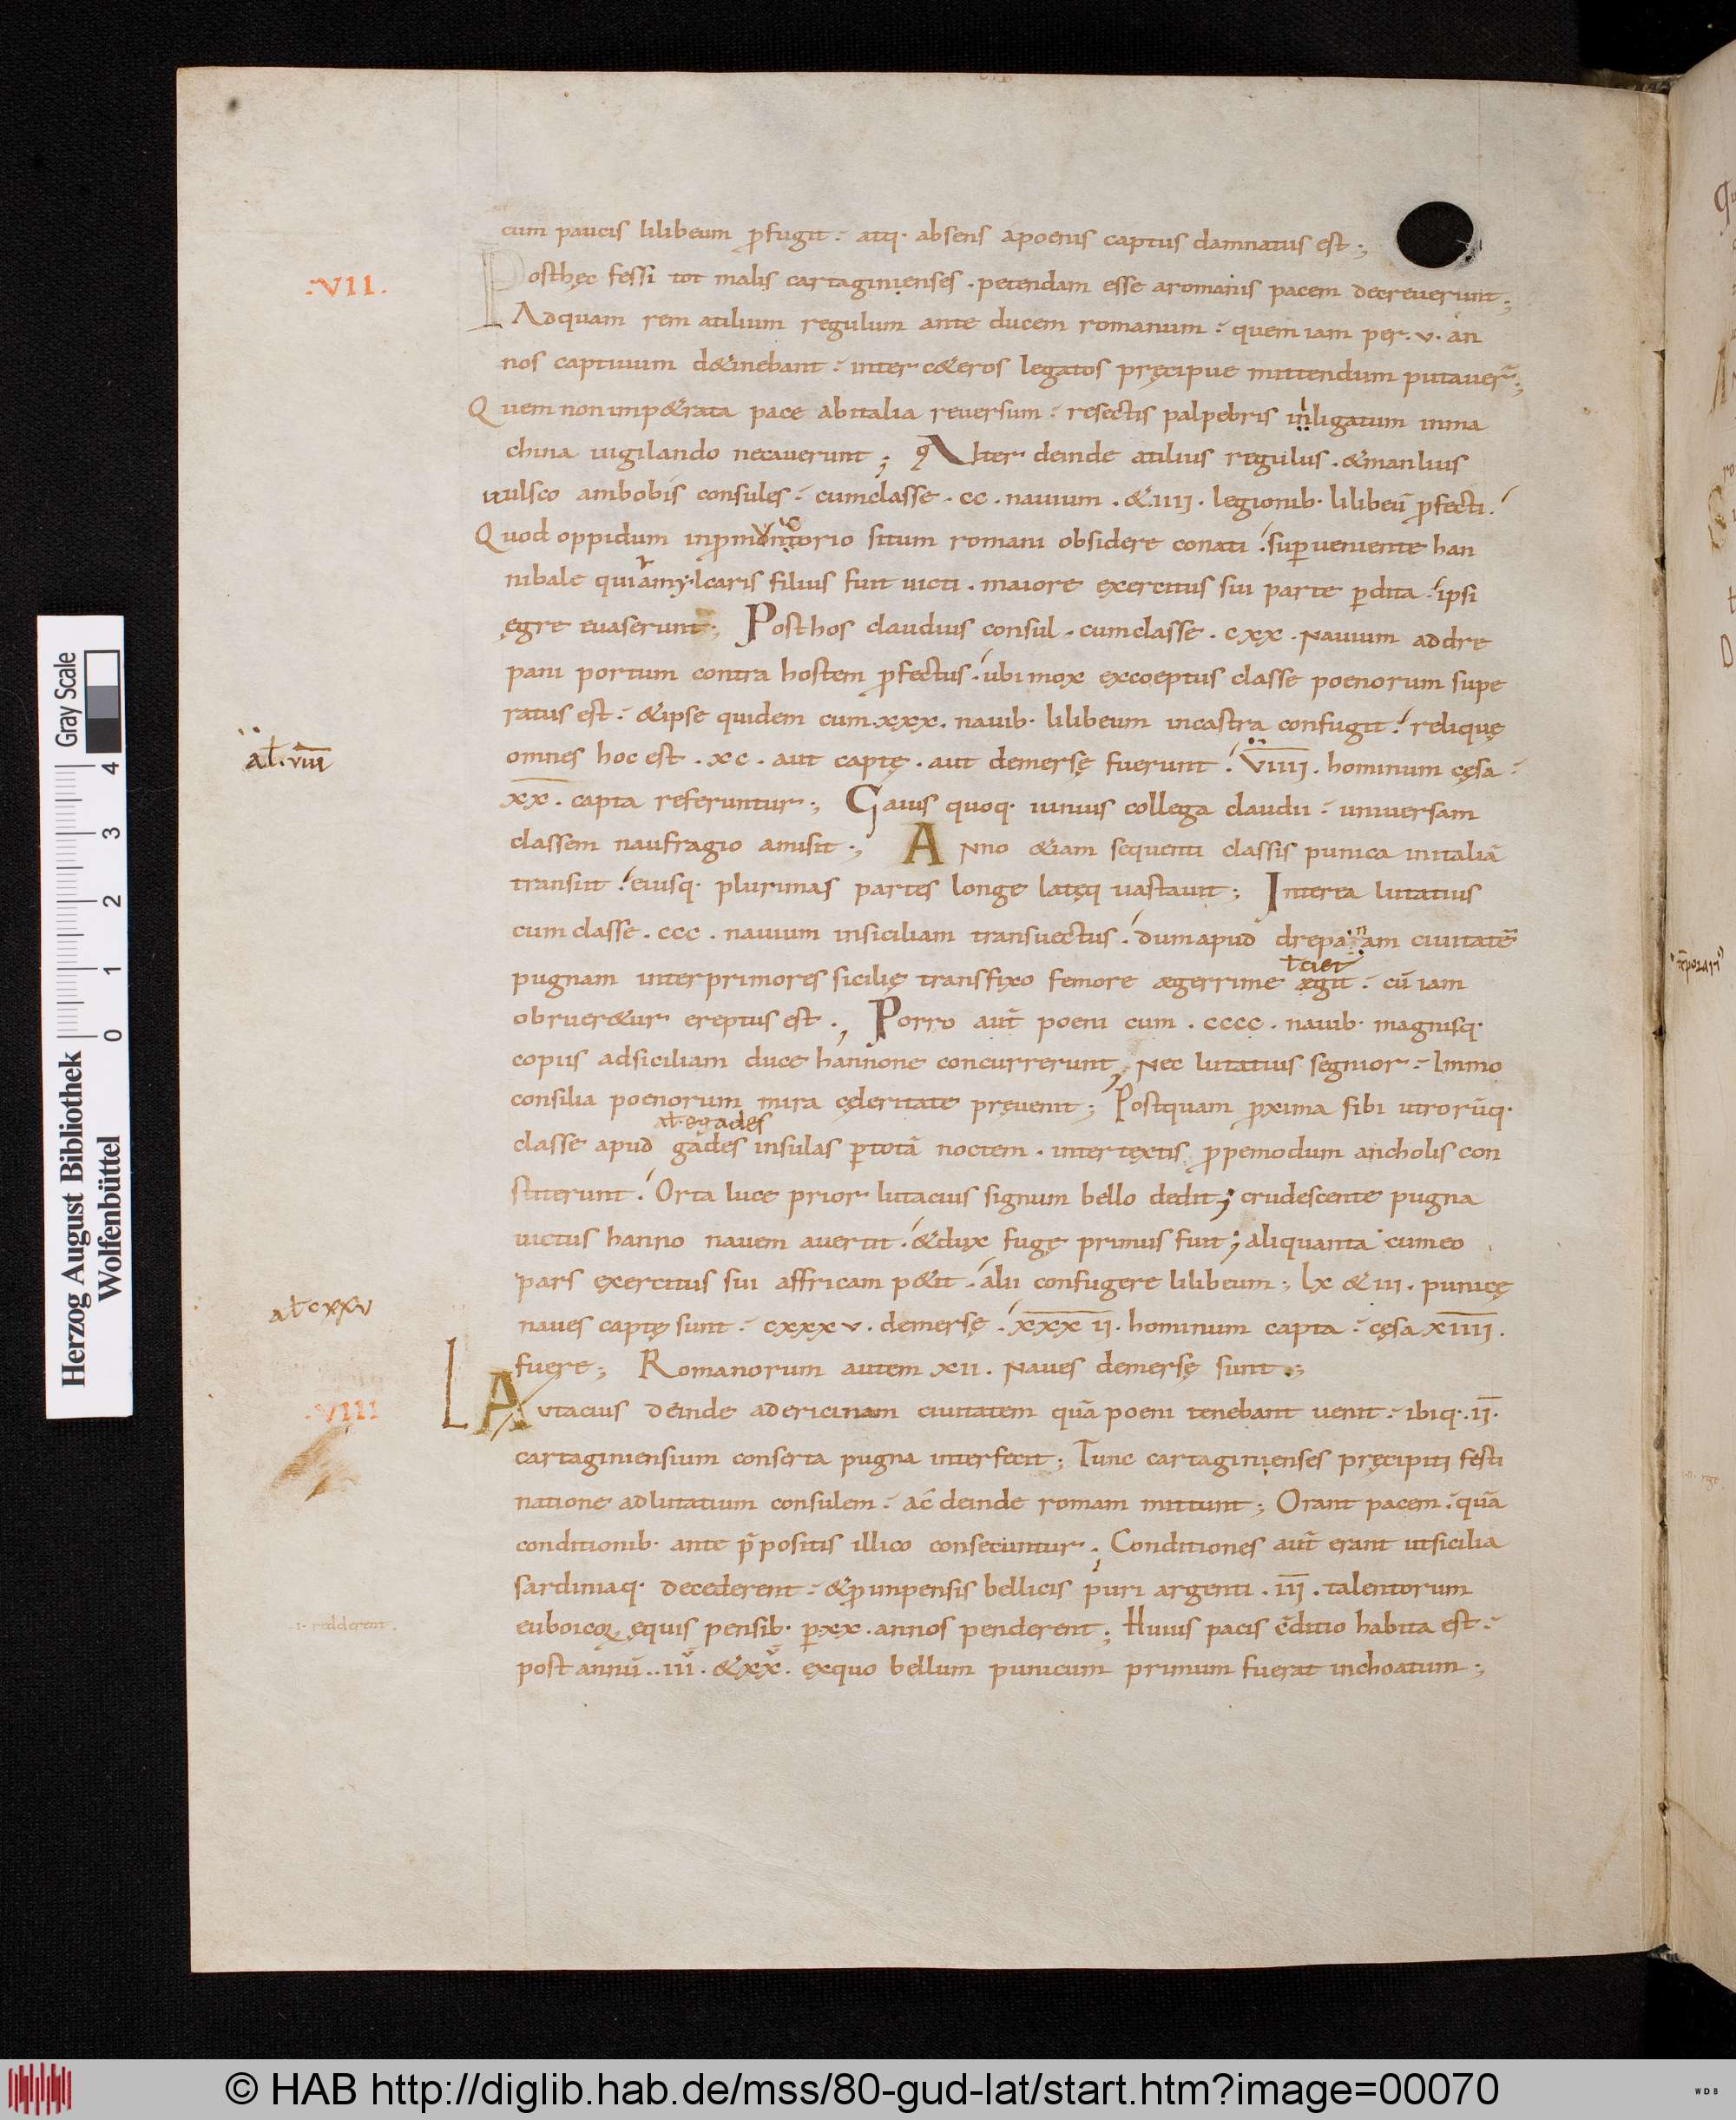 cum paucis lilibeum ꝓfugit: atq· absens apoenis captus damnatus est;
:VII.
Posthęc fessi tot malis cartaginienses. petendam esse aromanis pacem decreverunt;
Adquam rem atilium regulum ante ducem romanum: quem iam per. v. an
nos captiuum d&inebant: inter c&eros legatos pręcipue mittendum putauer̄;
Quem non imp&rata pace abitalia reuersum: resectis palpebris inligatum inma
china uigilando necauerunt; Alter deinde atilius regulus. &manlius
uulsco ambobis consules: cumclasse. cc. nauium. &.IIII. legionib· lilibeū ꝓfecti.
Quod oppidum inꝓmontorio situm romani obsidere conati: suꝑueniente han
nibale qui amylcaris filius fuit uicti. maiore exercitus sui parte ꝑdita: ipsi
ęgre euaserunt; Posthos claudius consul. cumclasse. cxx. Nauium addre
pani portum contra hostem ꝓfectus. ubi mox excoeptus classe poenorum supe
ratus est: &ipse quidem cum. xxx. nauib· lilibeum incastra confugit: reliquę
omnes hoc est. xc. aut captę. aut demersę fuerunt: V̅I̅I̅I̅I̅. hominum cęsa:
al̵. v̅i̅i̅i̅
x̅x̅. capta referuntur; Gaius quoq· iunius collega claudii: uniuersam
classem naufragio amisit; ANno &iam sequenti classis punica initaliā
transiit: eiusq· plurimas partes longe latęq uastauit; Interea lutatius
cum classe. ccc. nauium insiciliam transuectus. dumapud drepanam ciuitatē
pugnam inter primores sicilię transfixo femore ægerrime ægit: cū iam
obruer&ur ereptus est; Porro aut̄ poeni cum. cccc. nauib· magnisq·
copiis adsiciliam duce hannone concurrerunt; Nec lutatius segnior: Immo
consilia poenorum mira cęleritate pręuenit; Postquam ꝓxima sibi utrorūq·
al̵. egades
classe apud gades insulas ꝑtotā noctem. intertextis ꝓpemodum ancholis con
stiterunt: Orta luce prior lutacius signum bello dedit; crudescente pugna
uictus hanno nauem auertit. &dux fugę primus fuit; aliquanta cumeo
pars exercitus sui affricam p&it. alii confugere lilibeum; lx &iii. punicę
al̵ cxxv
naues captę sunt: cxxxv. demersę. x̅x̅x̅ i̅i̅. hominum capta: cęsa x̅i̅i̅i̅i̅.
fuere; Romanorum autem xii. Naues demersę sunt;
.VIII
LAutacius deinde adericinam ciuitatem quā poeni tenebant uenit: ibiq·. i̅i̅.
cartaginiensium conserta pugna interfecit; Tunc cartaginienses pręcipiti festi
natione adlutatium consulem: ac deinde romam mittunt; Orant pacem: quā
conditionib· ante p̄positis illico consecuntur; Conditiones aut̄ erant utsicilia
sardiniaq· decederent: &ꝓimpensis bellicis puri argenti. i̅i̅i̅. talentorum
.i. redderent.
euboicoꝝ ęquis pensib· ꝑxx. annos penderent; Huius pacis c̄ditio habita est:
post annū.. iii. &xx. exquo bellum punicum primum fuerat inchoatum;
Herzog August Bibliothek
Wolfenbüttel
Gray Scale
0 1 2 3 4
© HAB http://diglib.hab.de/mss/80-gud-lat/start.htm?image=00070
WDB